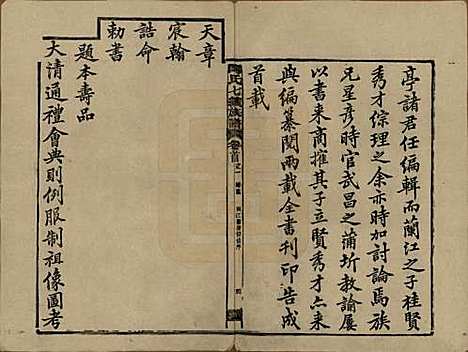 亭諸君任編輯而蘭江之子桂賢
秀才綜理之余亦時加討論焉族
兄星彥時官武昌之蒲圻教諭屢
以書來商搉其子立賢秀才亦來
與編纂閱兩載全書刊印告成
首載
氏七
族譜
卷首之一
四
天章
宸翰
誥命
勅書
題本壽品
大清通禮會典則例服制祖像圖考